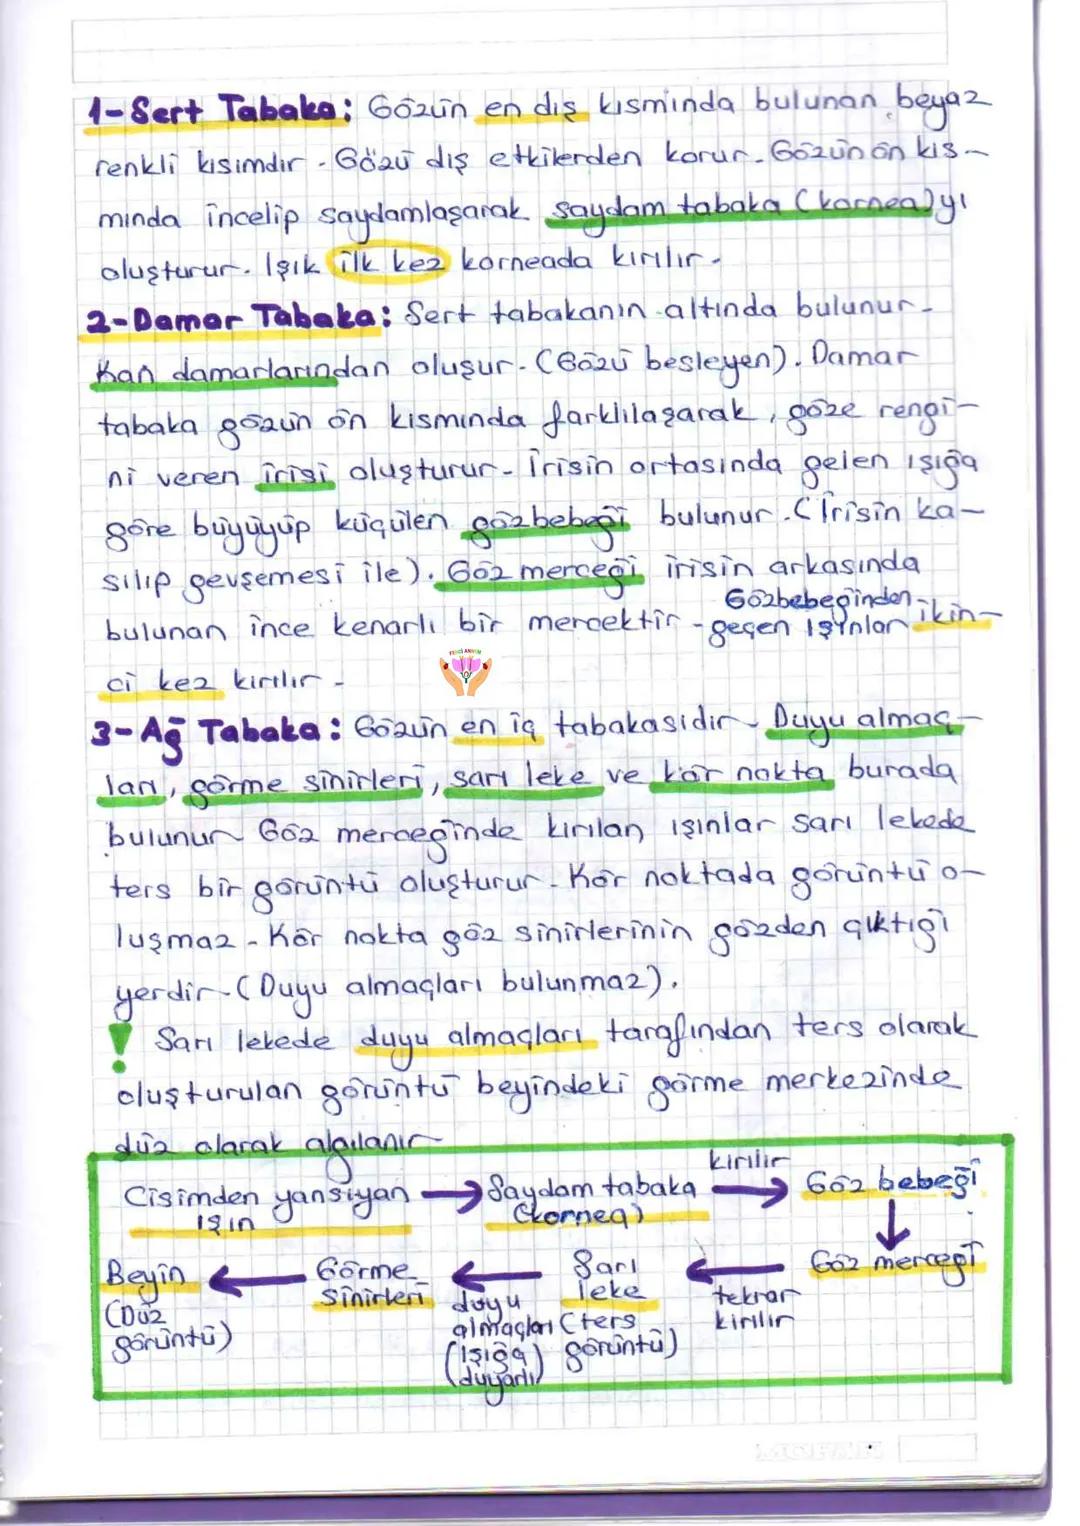 1-Sert Tabaka: Gözün en dış kısmında bulunan beyaz
renkli kısımdır. Gözü dış etkilerden korur. Gözün ön kıs-
mında incelip saydamlaşarak saydam tabaka (kornea)yı
oluşturur. Işık ilk kez korneada kırılır.
2-Damar Tabaka: Sert tabakanın altında bulunur.
Kan damarlarından oluşur. (Gözü besleyen). Damar
tabaka gözün ön kısmında farklılaşarak, göze rengi-
ni veren irisi oluşturur. İrisin ortasında gelen ışığa
göre büyüyüp küçülen gözbebeği bulunur. (İrisin ka-
sılıp gevşemesi ile). Göz merceği irisin arkasında
bulunan ince kenarlı bir mercektir. Gözbebeğinden geçen ışınlar ikin-
ci kez kırılır.
FENCİ ANNEM
3-Ağ Tabaka: Gözün en iç tabakasıdır. Duyu almaç-
ları, görme sinirleri, sarı leke ve kör nokta burada
bulunur. Göz merceğinde kırılan ışınlar sarı lekede
ters bir görüntü oluşturur. Kör noktada görüntü o-
luşmaz. Kör nokta göz sinirlerinin gözden çıktığı
yerdir. (Duyu almaçları bulunmaz).
! Sarı lekede duyu almaçları tarafından ters olarak
oluşturulan görüntü beyindeki görme merkezinde
düz olarak algılanır.
Cisimden yansıyan ışın → Saydam tabaka (kornea) → kırılır Göz bebeği
↓
Göz merceği
← tekrar kırılır
Sarı leke (ters görüntü)
← duyu almaçları (ışığa duyarlı)
Görme Sinirleri
← Beyin (Düz görüntü)